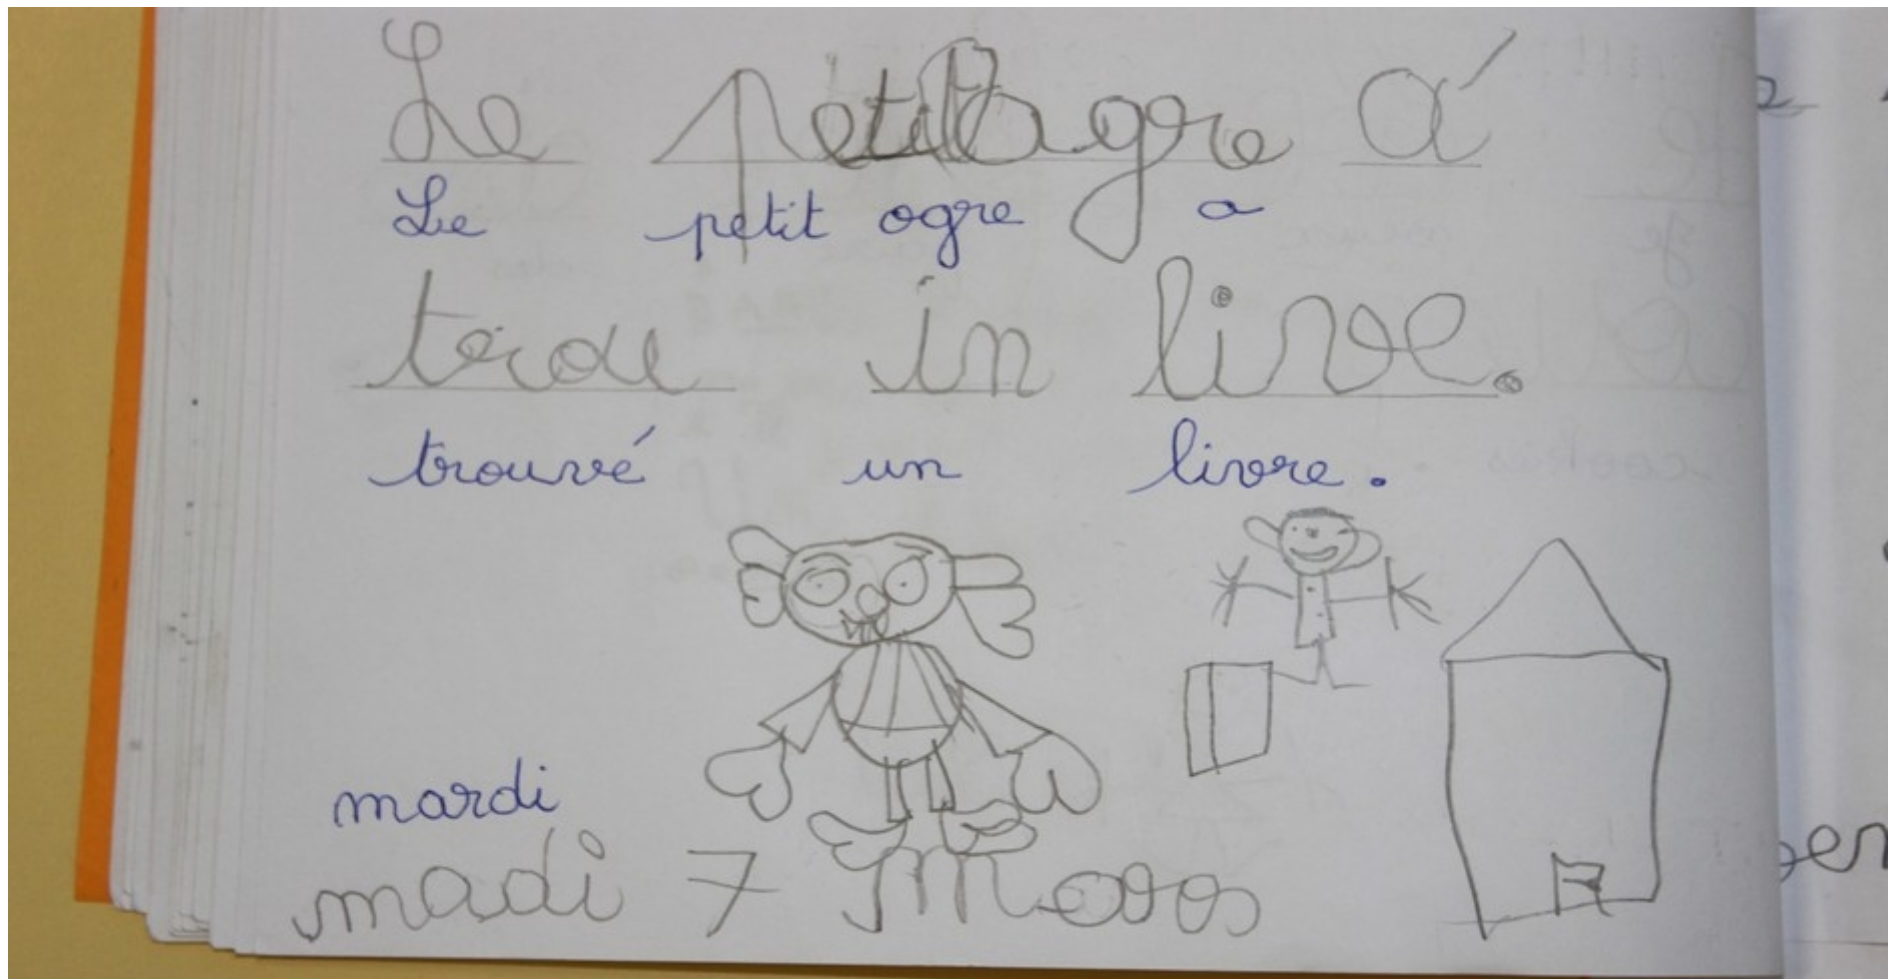 Le petit ogre á
Le petit ogre a
in live.
trouvé un livre.
mardi
madi 7